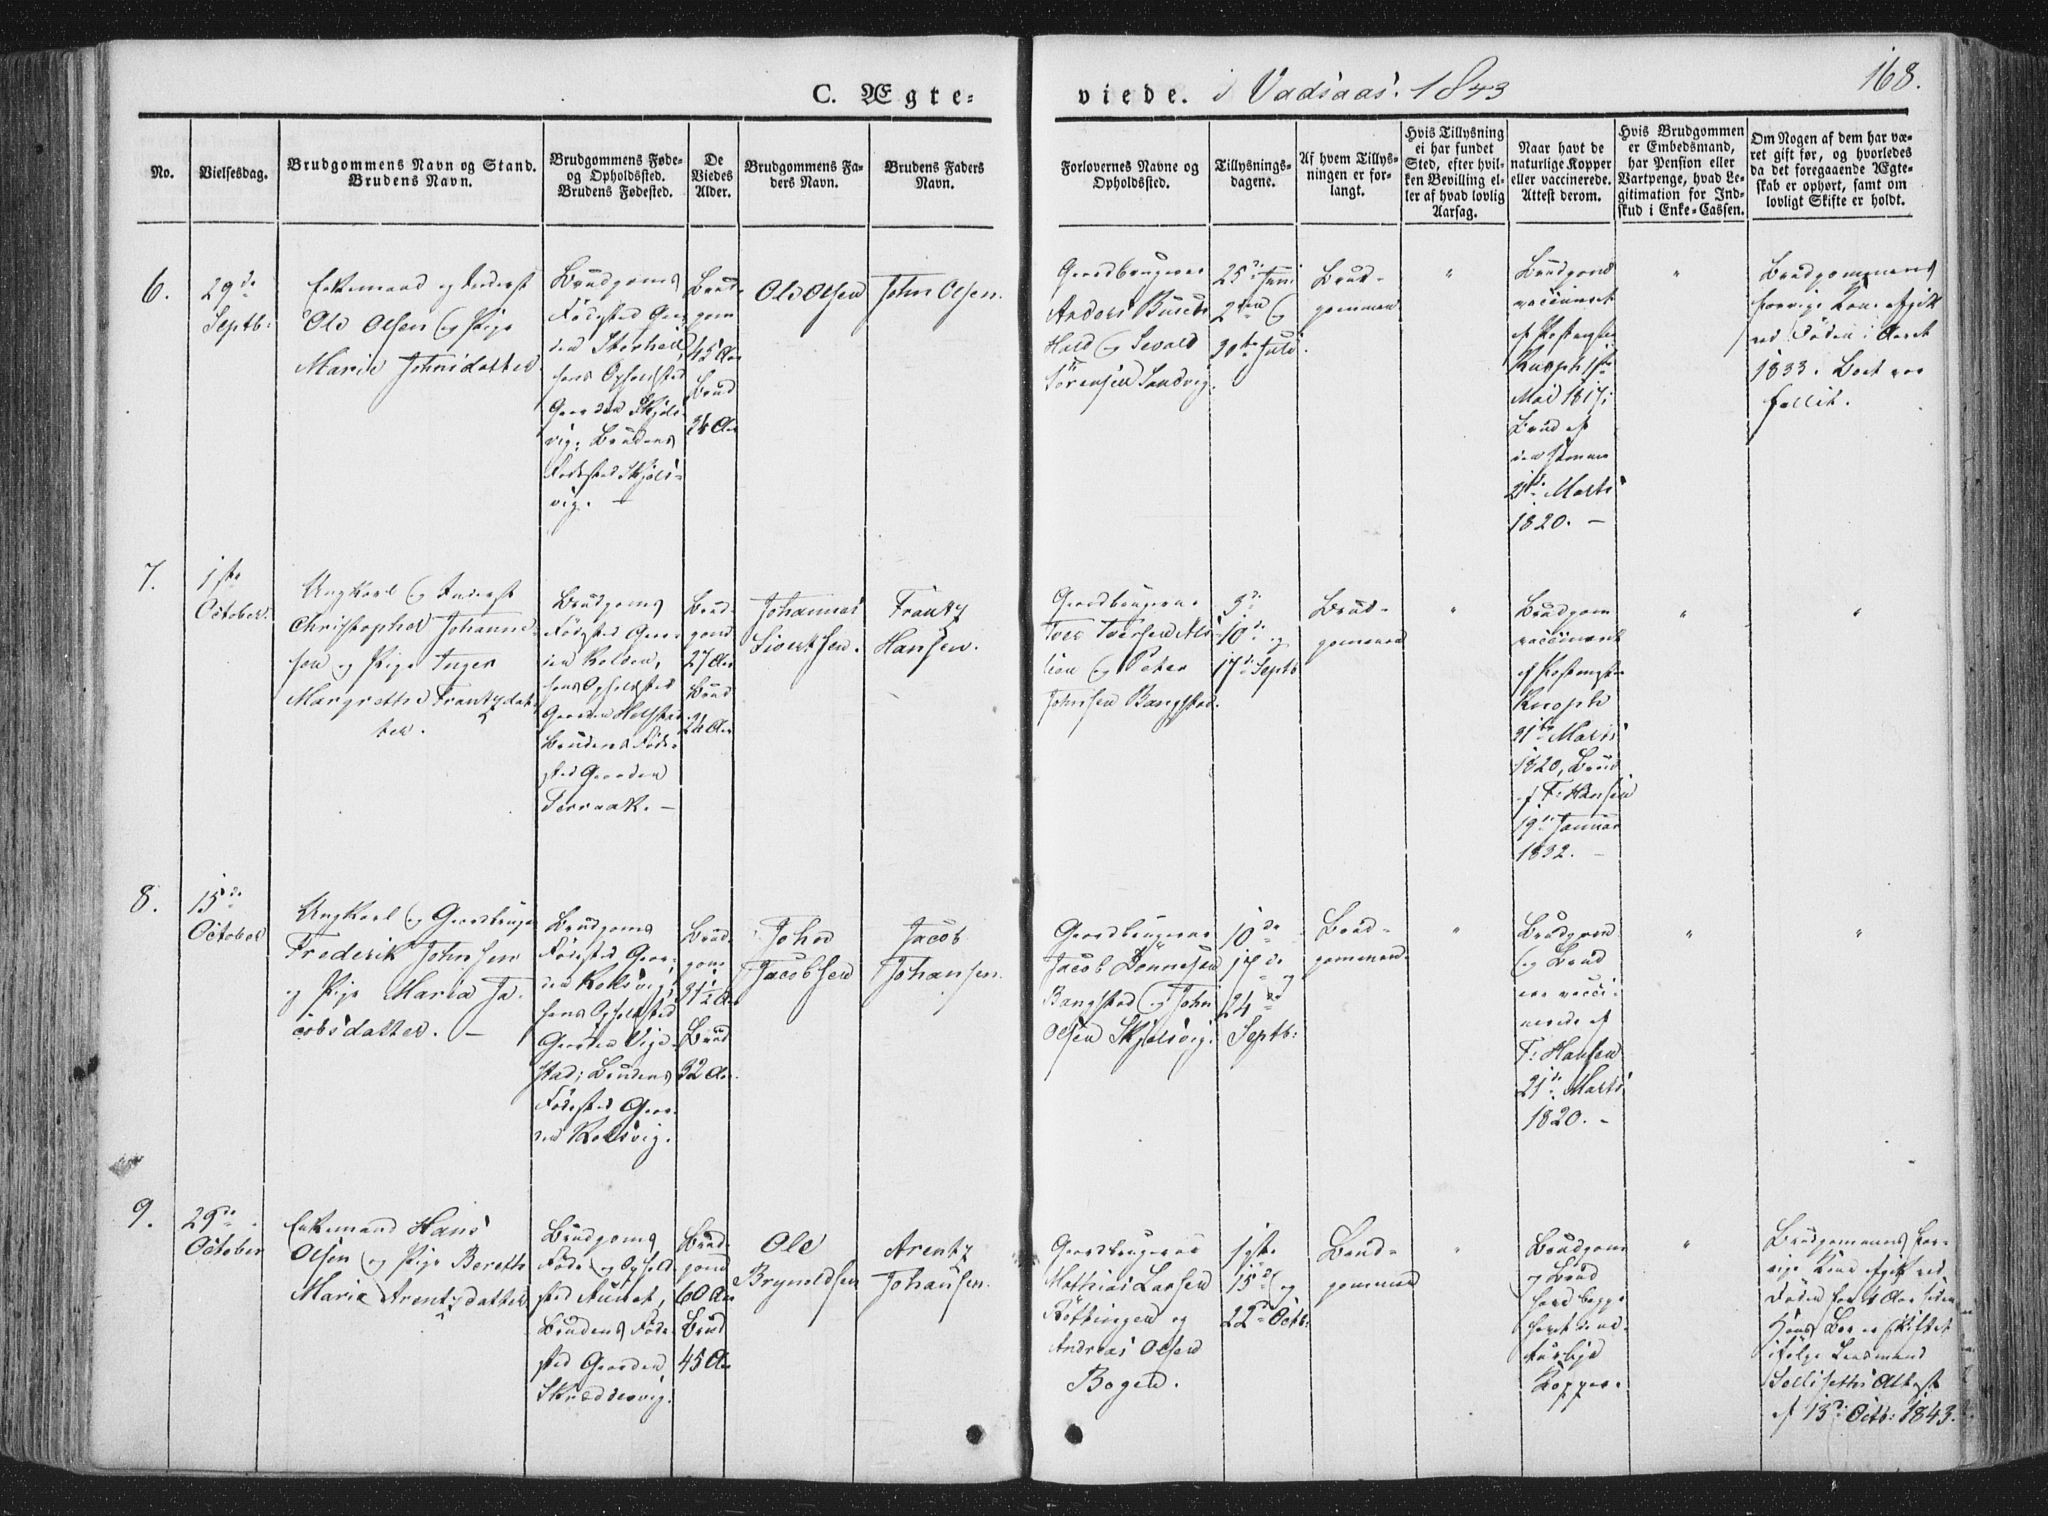 C. Ægte-
viede. i Vadsaas. 1843
168.
No.
Vielsesdag.
Brudgommens Navn og Stand.
Brudens Navn.
Brudgommens Føde-
og Opholdssted.
Brudens Fødested.
De
Viedes
Alder.
Brudgommens Fa-
ders Navn.
Brudens Faders
Navn.
Forlovernes Navne og
Opholdssted.
Tillysnings-
dagene.
Af hvem Tillys-
ningen er for-
langt.
Hvis Tillysning
ei har fundet
Sted, efter hvil-
ken Bevilling el-
ler af hvad lovlig
Aarsag.
Naar havt de
naturlige Kopper
eller vaccinerede.
Attest derom.
Hvis Brudgommen
er Embedsmand,
har Pension eller
Vartpenge, hvad Le-
gitimation for Ind-
skud i Enke-Cassen.
Om Nogen af dem har væ-
ret gift før, og hvorledes
da det foregaaende Ægte-
skab er ophørt, samt om
lovligt Skifte er holdt.
6.
29de
Septb:
Enkemand og Inderst
Ole Olsen og Pige
Marie Johnsdatter
Brudgoms
Fødested Gaar-
den Storheil,
hans Opholdsted
Gaarden Skjels-
vig; Brudens
Fødested Skjels-
vig. —
Brud-
gom
45 Aar
Brud
26 Aar
Ole Olsen
John Olsen.
Gaardbrugerne
Anders
Hald og Sevald
Sörensen Sandvig.
25de Juni
2den og
30te Juli.
Brud-
gommen
"
Brudgom
vaccineret
af
Knoph 1ste
Mai 1817;
Brud af
den samme
21de Marts
1820. —
"
Brudgommens
forrige Kone afgik
ved Døden i Aaret
1833. Boet var
fallit.
7.
1ste
October.
Ungkarl og Inderst
Christopher Johanne-
sen og Pige Inger
Margrethe Frantzdat-
ter.
Brudgoms
Fødested Gaar-
den Rolsen,
hans Opholdsted
Gaarden Helstad
Brudens Føde-
sted Gaarden
Terraak. —
Brud-
gom
27 Aar
Brud
26 Aar
Johannes
Sivertsen.
Frantz
Hansen.
Gaardbrugerne
Iver Iversen
og Peter
Johnsen Bangstad.
3de
10de og
17de Septb
Brud-
gommen
"
Brudgom
vaccineret
af
Knoph
21de Marts
1820, Brud
af F: Hansen
19de Januar
1832. —
"
"
8.
15de
October
Ungkarl og Gaardbruger
Frederik Johnsen
og Pige Maria Ja-
cobsdatter. —
Brudgoms
Fødested Gaar-
den Rolsvig,
hans Opholdsted
Gaarden Vige-
stad; Brudens
Fødested Gaar-
den Rolsvig.
Brud-
gom
31½ Aar
Brud
32 Aar.
John
Jacobsen
Jacob
Johansen.
Gaardbrugerne
Jacob Dønnesen
Bangstad og John
Olsen Skjelsvig.
10de
17de og
24de
Septb:
Brud-
gommen
"
Brudgom
og Brud
ere vacci-
nerede af
F: Hansen
21de Marts
1820. —
"
"
9.
29de
October
Enkemand Hans
Olsen og Pige Bereth
Marie Arentzdatter
Brudgoms
Føde- og Ophold-
sted Aunet,
Brudens Føde-
sted Gaarden
Skreddervig.
Brud-
gom
60 Aar
Brud
45 Aar
Ole
Brynildsen
Arentz
Johansen.
Gaardbrugerne
Mathias Larsen
og
Andreas Olsen
Bogen.
1ste
15de og
22de Octb:
Brud-
gommen
"
Brudgom
og Brud
have begge
havt de na-
turlige
Kopper.
"
Brudgommens for-
rige Kone afgik ved
Døden for
Hans Bo er skiftet
ifølge Lensmand
Sellseths Attest
af 13de Octb: 1843.